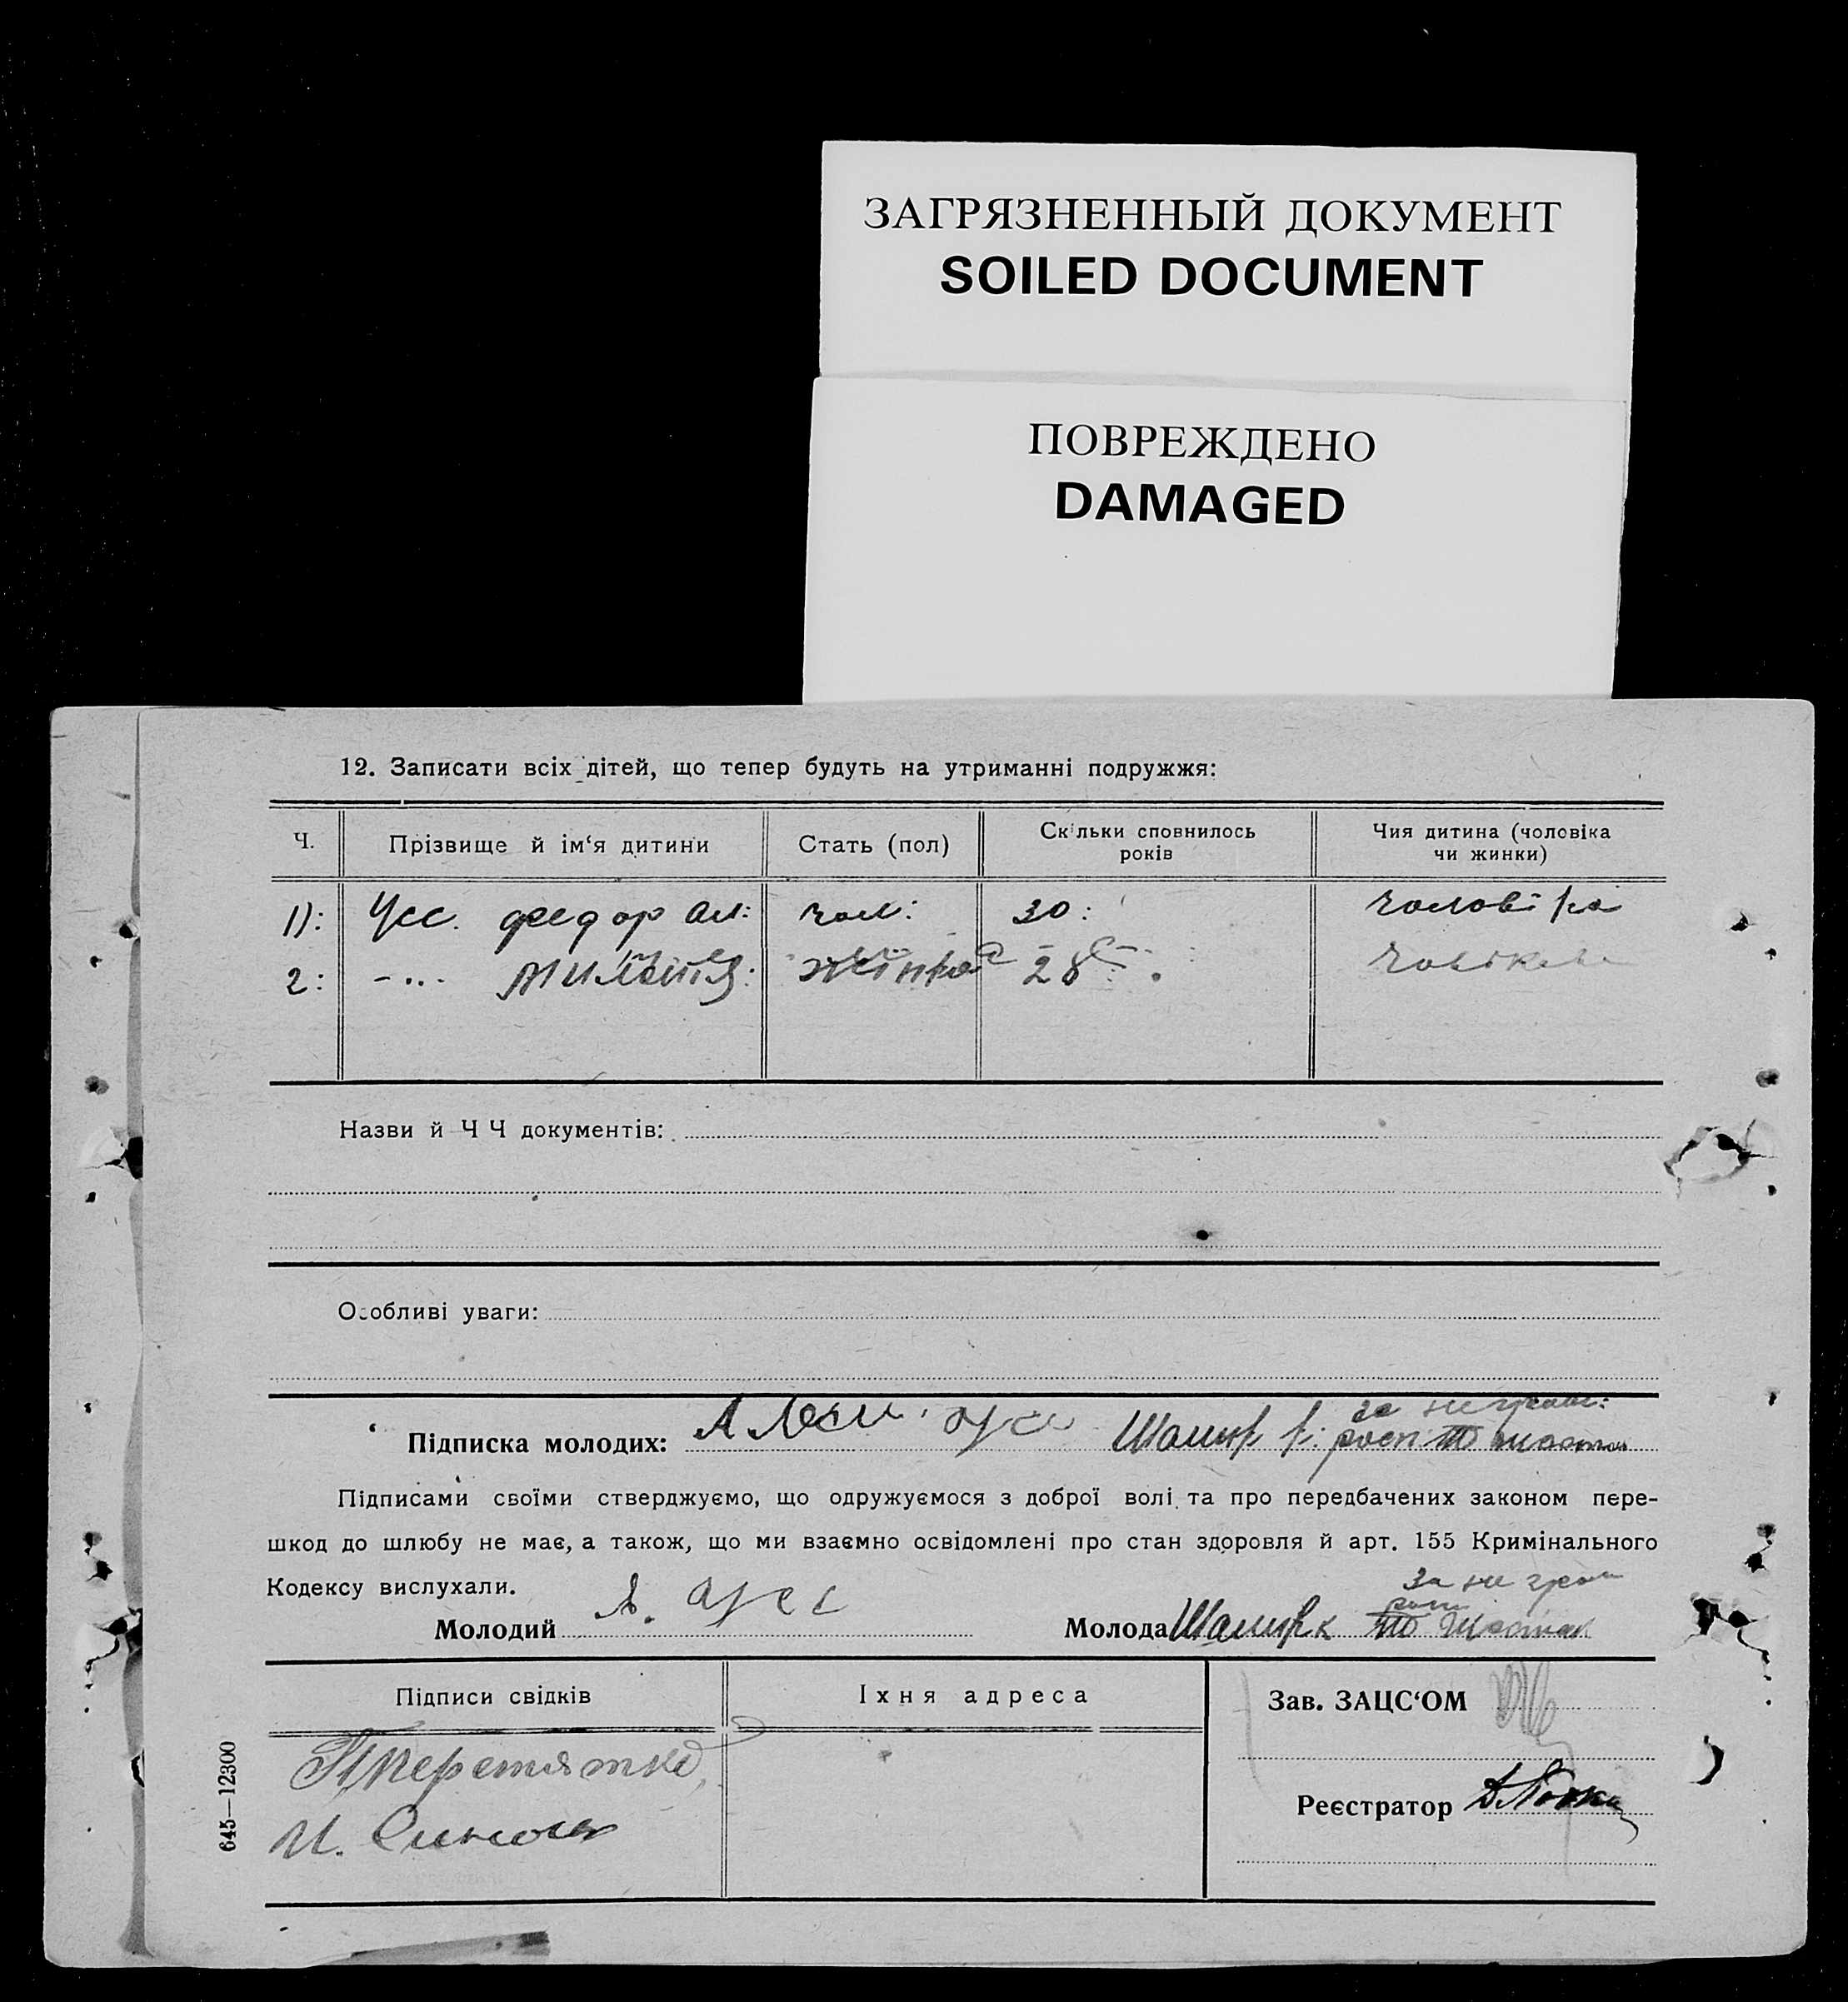 ЗАГРЯЗНЕННЫЙ ДОКУМЕНТ
SOILED DOCUMENT
ПОВРЕЖДЕНО
DAMAGED
12. Записати всіх дітей, що тепер будуть на утриманні подружжя:
Ч. Прізвище й ім‘я дитини Стать (пол) Скільки сповнилось років Чия дитина (чоловіка чи жинки)
1): Усс. Федор Ал: чол: 30: чоловіка
2: -..- жінка 28
Назви й Ч Ч документів:
Особливі уваги:
за не грам:
Підписка молодих: Усс
Підписами своїми стверджуємо, що одружуємося з доброї волі та про передбачених законом пере-
шкод до шлюбу не має, а також, що ми взаємно освідомлені про стан здоровля й арт. 155 Кримінального
Кодексу вислухали.
за не грам
Молодий А. Усс Молода
Підписи свідків Їхня адреса Зав. ЗАЦС‘ОМ
Перетятко
Реєстратор
И.
645—12300